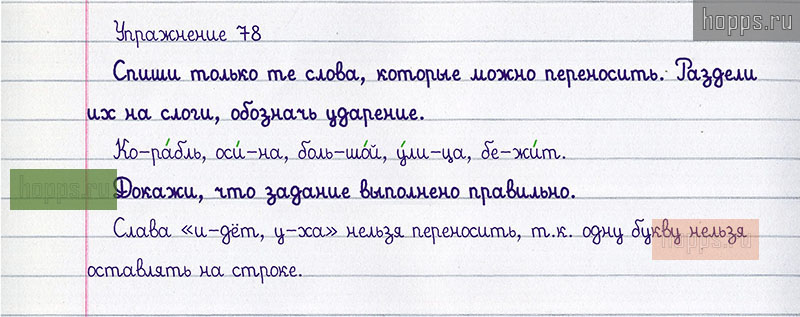 hopps.ru
Упражнение 78
Спиши только те слова, которые можно переносить. Раздели
их на слоги, обозначь ударение.
Ко-ра́бль, оси́-на, боль-шо́й, у́ли-ца, бе-жи́т.
hopps.ru
Докажи, что задание выполнено правильно.
Слава «и-дёт, у-ха» нельзя переносить, т.к. одну букву нельзя
hopps.ru
оставлять на строке.